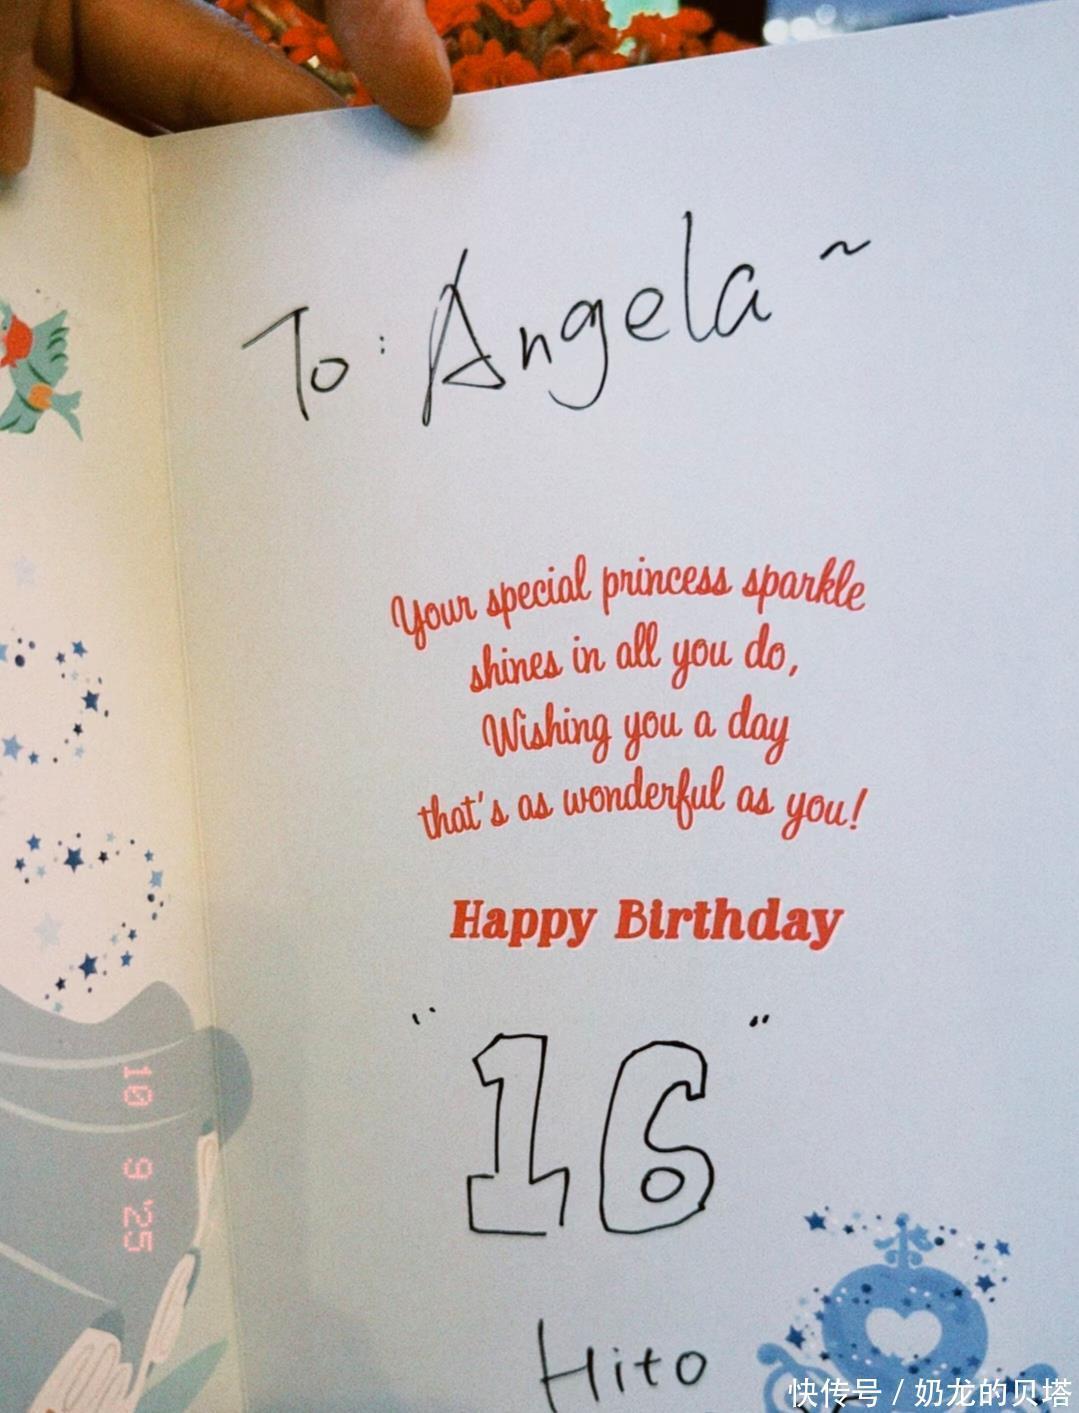 To: Angela ~
Your special princess sparkle
shines in all you do,
Wishing you a day
that's as wonderful as you!
Happy Birthday
"16"
10 9 '25
Hito
快传号 / 奶龙的贝塔